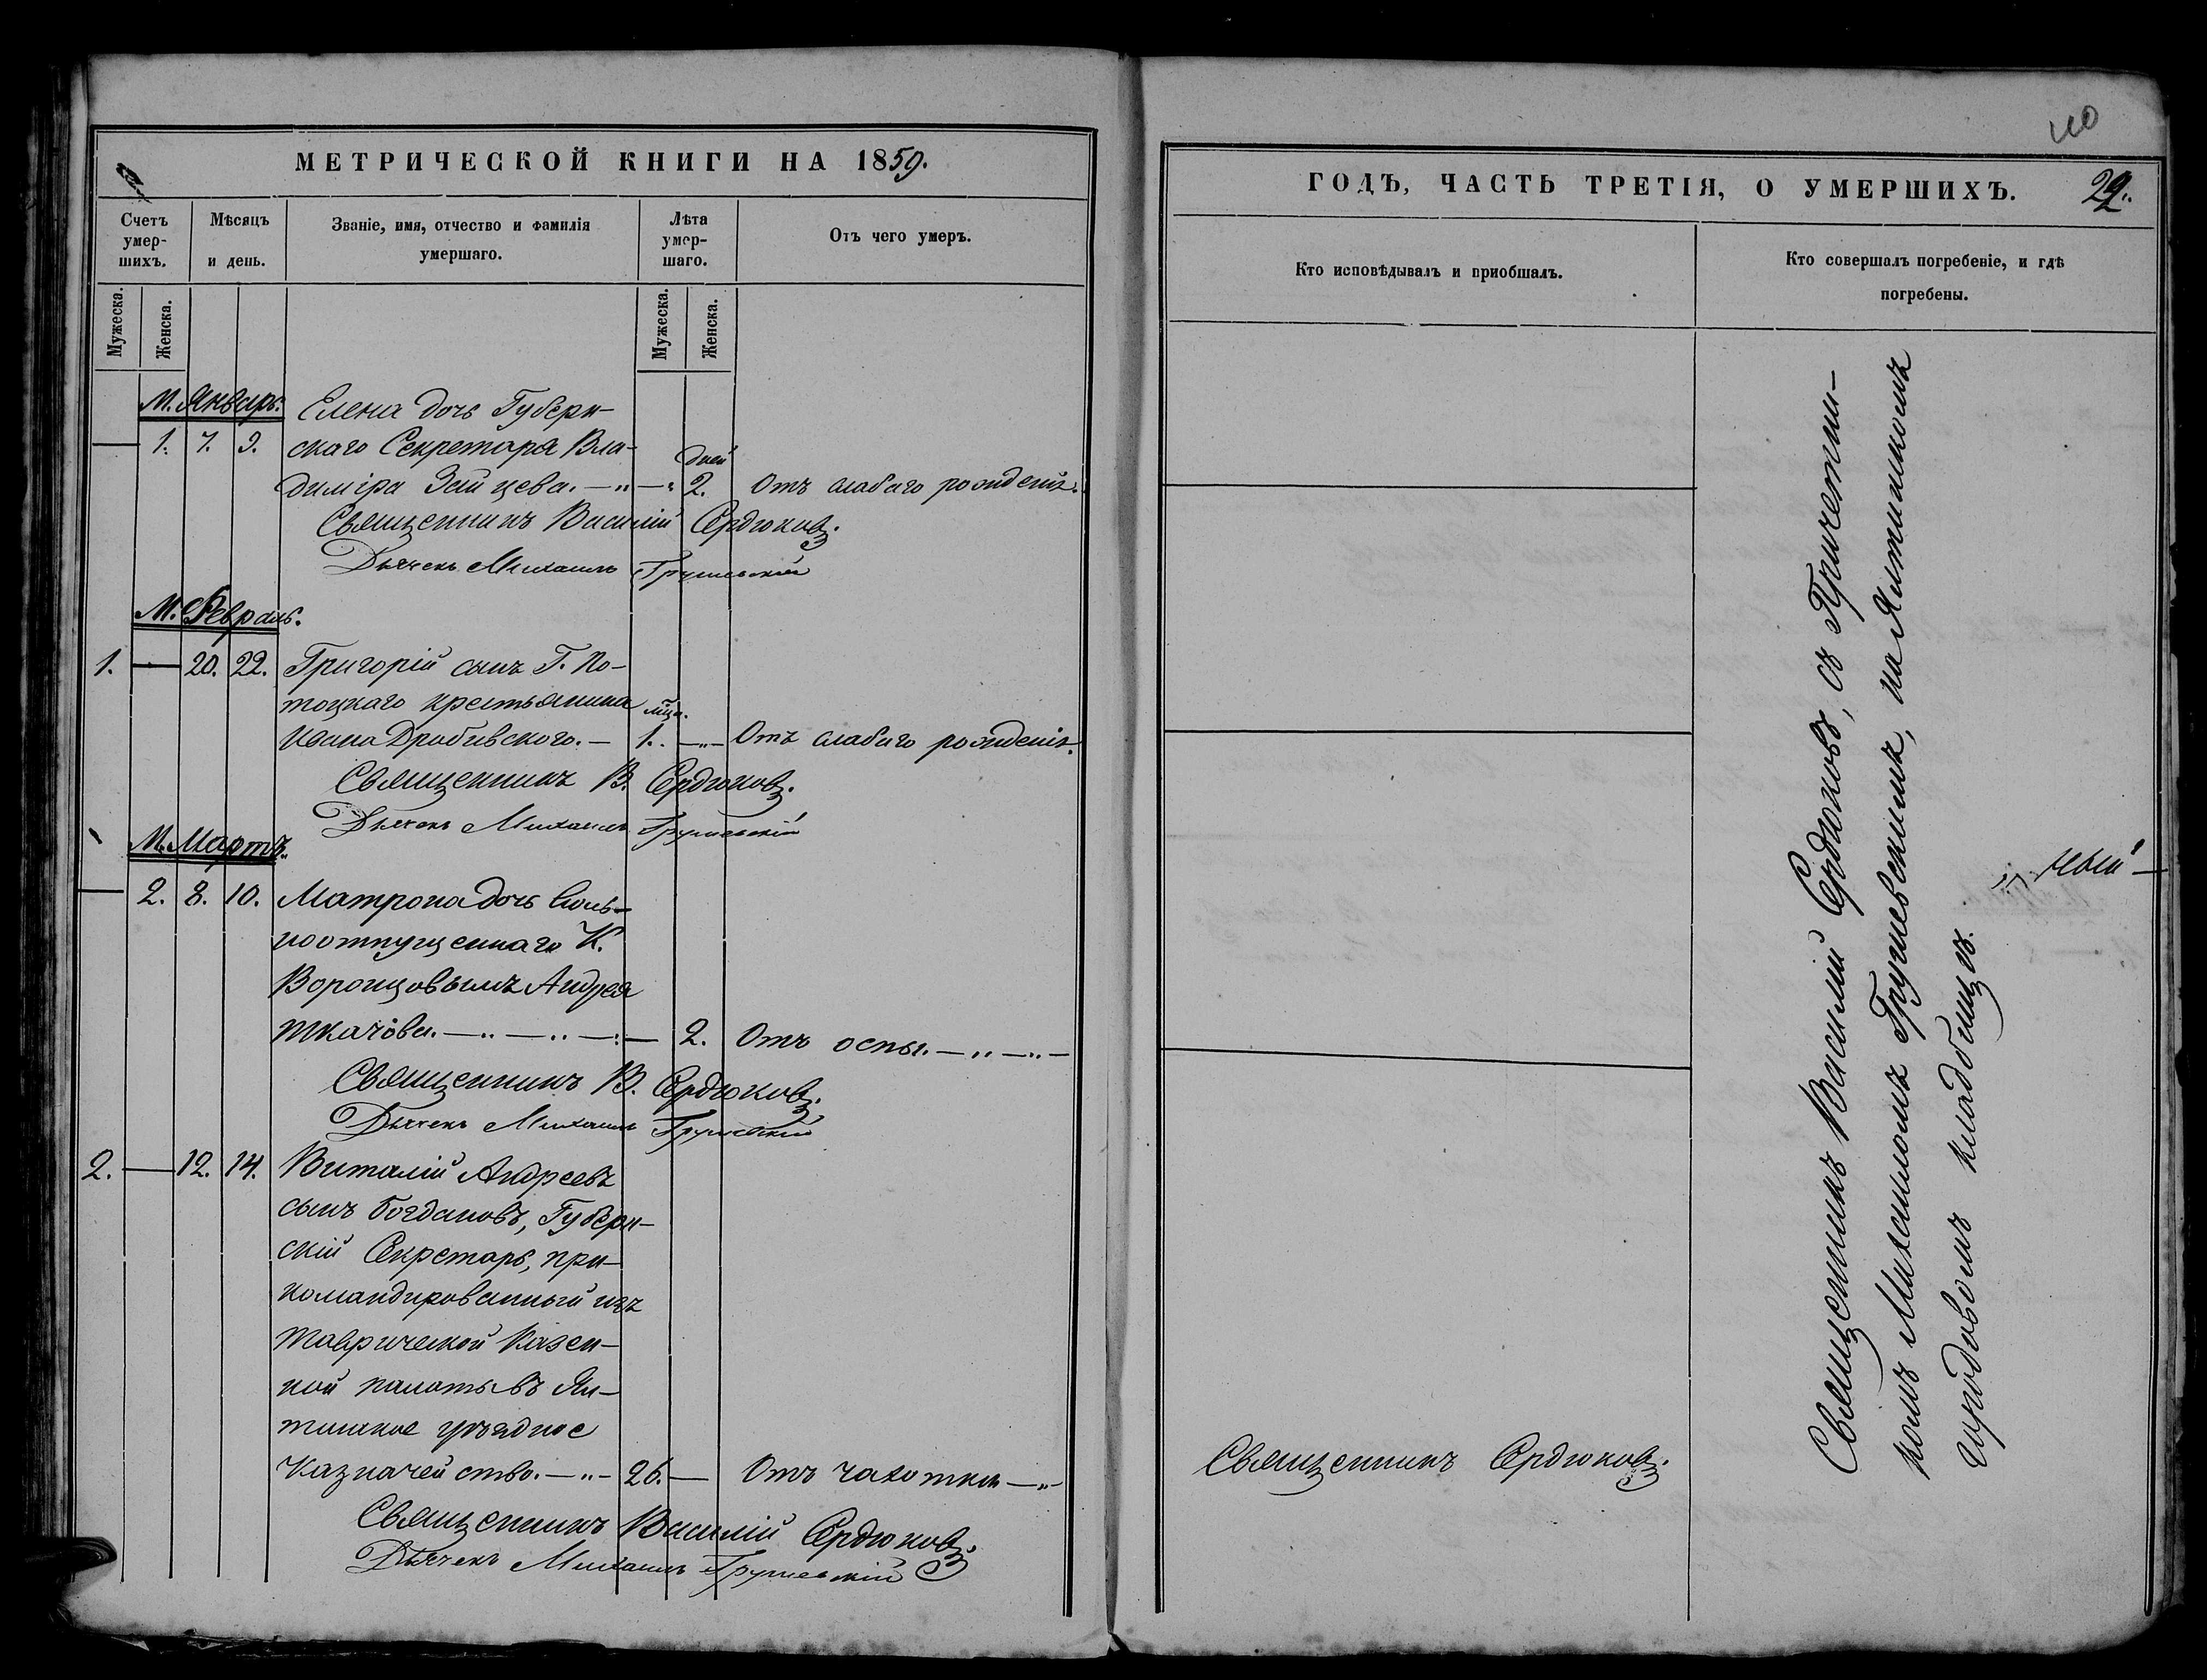 МЕТРИЧЕСКОЙ КНИГИ НА 1859.
Счетъ умер-шихъ.
Мѣсяцъ и день.
Званіе, имя, отчество и фамилія умершаго.
Лѣта умер-шаго.
Отъ чего умеръ.
Мужеска.
Женска.
Мужеска.
Женска.
М. Январь.
Елена дочь Губерн-
— 1. 7. 9. скаго Секретаря Вла- дней
диміра Зайцева. —„—„ 2. Отъ слабаго рожденія.
Священникъ Василій Сердюковъ.
Дьячекъ Михаилъ Грушевскій
М. Февраль.
1. — 20. 22. Григорій сынъ Г. По-
тоцкаго крестьянина мца.
Ивана Дробивского. — 1. —„— Отъ слабаго рожденія.
Священникъ В. Сердюковъ.
Дьячекъ Михаилъ Грушевскій
М. Мартъ.
— 2. 8. 10. Матрона дочь воль-
ноотпущеннаго К.
Воронцовымъ Андрея
Ткачова. —„—„—:— 2. Отъ оспы. —„—„—
Священникъ В. Сердюковъ.
Дьячекъ Михаилъ Грушевскій
2. — 12. 14. Виталій Андреевъ
сынъ Богдановъ, Губерн-
скій Секретарь, при-
командированный изъ
Таврической Казен-
ной палаты въ Ял-
тинское уѣздное
Казначейство. —„— 26. — Отъ чахотки —„—
Священникъ Василій Сердюковъ.
Дьячекъ Михаилъ Грушевскій
110
ГОДЪ, ЧАСТЬ ТРЕТІЯ, О УМЕРШИХЪ. 29.
Кто исповѣдывалъ и приобшалъ.
Кто совершалъ погребеніе, и гдѣ погребены.
Священникъ Сердюковъ.
Священникъ Василій Сердюковъ, съ Причетни-
комъ Михаиломъ Грушевскимъ, на Ялтинскомъ
городовомъ кладбищѣ.